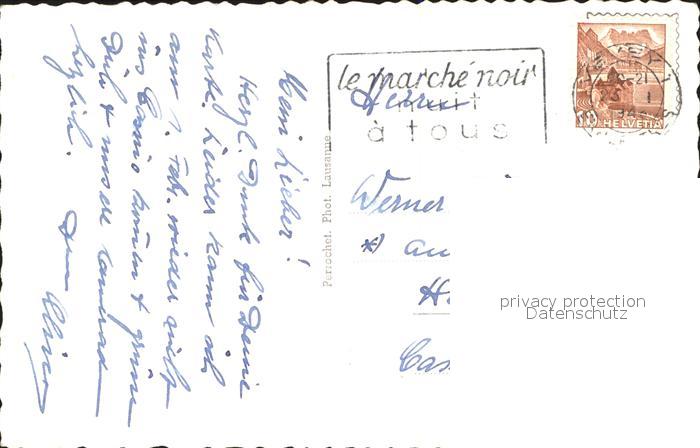 Mein Lieber!
Herzl. Dank für Deine
Karte. Leider kann ich
am 7. Febr. wieder nicht
ins Casino kommen & grüsse
Dich & unsere Kameraden
herzlich.
Dein
Perrochet. Phot. Lausanne
le marché noir
nuit
à tous
VEVEY 1
10 HELVETIA
Herrn
Werner
*) au
H.
Cas
privacy protection
Datenschutz